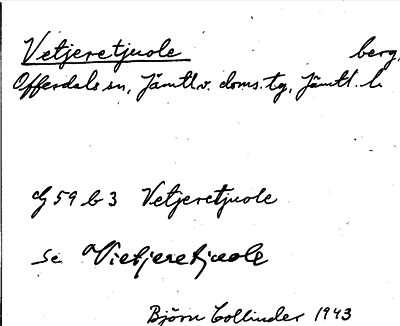 Vetjeretjuole berg,
Offerdals sn, Jämtl.v. doms. tg, Jämtl. l.
G 59 b 3 Vetjeretjuole
se Vietjeretjuole
Björn Collinder 1943